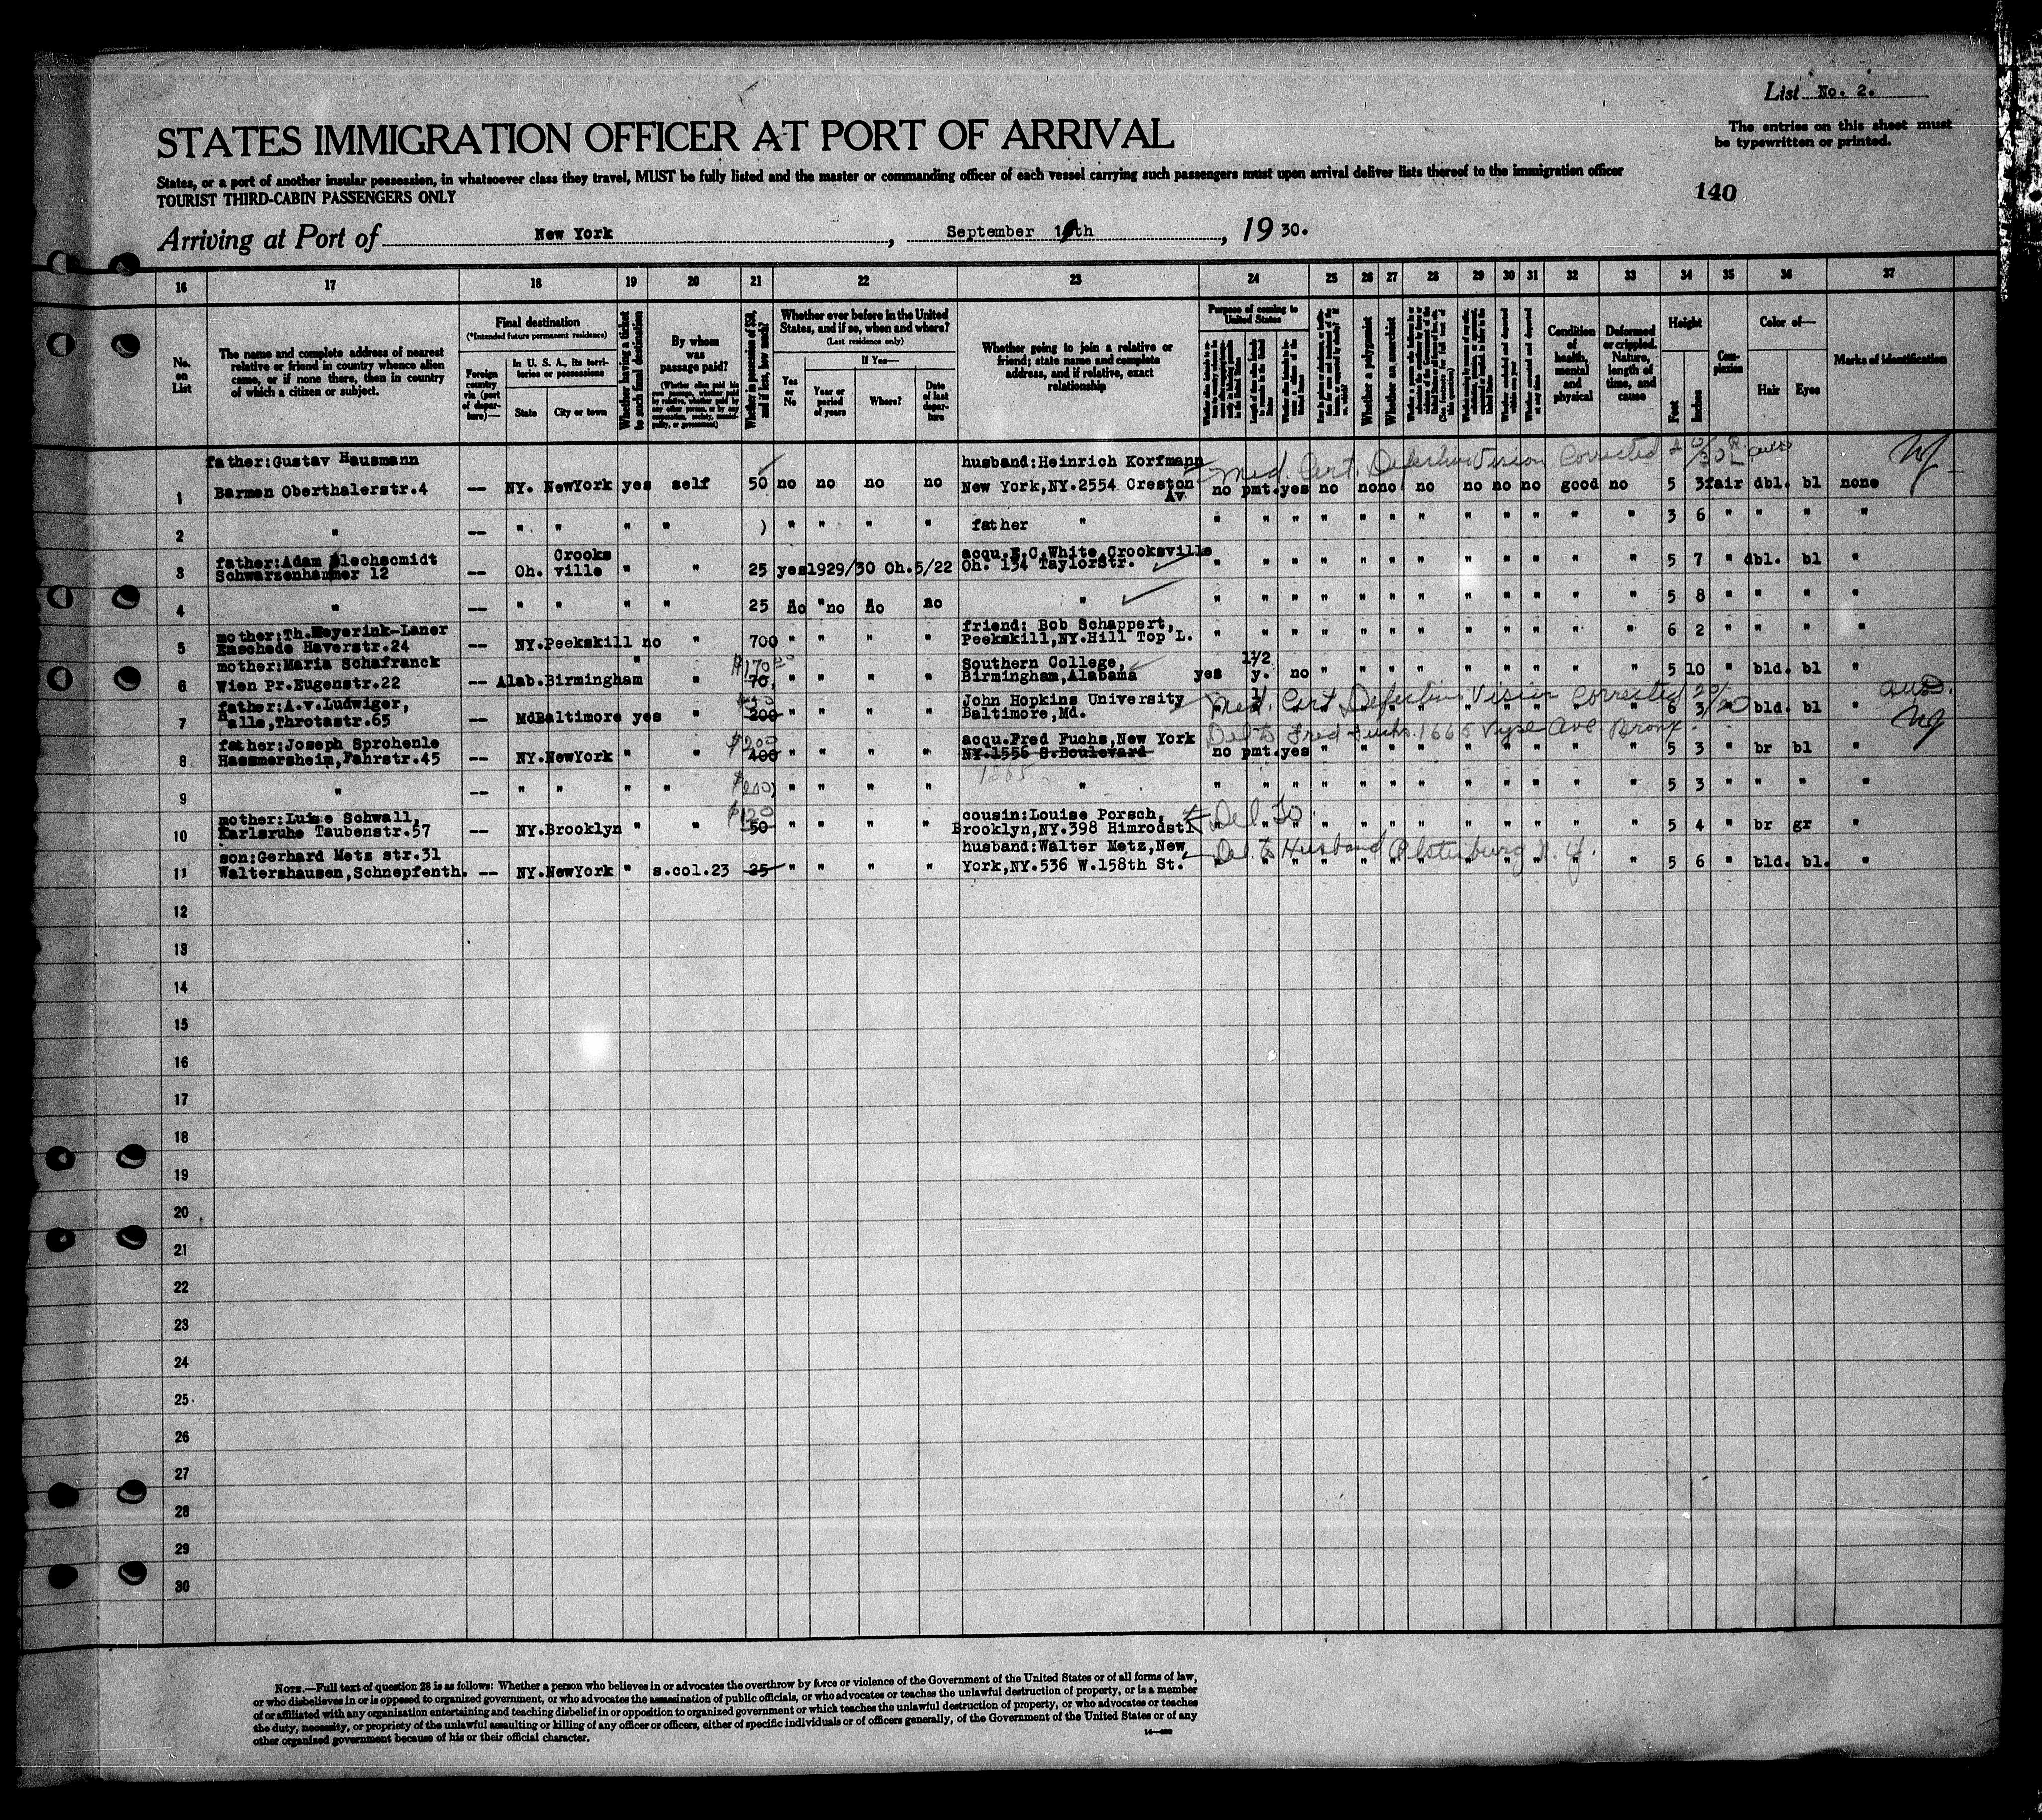 List No. 2.
STATES IMMIGRATION OFFICER AT PORT OF ARRIVAL
The entries on this sheet must
be typewritten or printed.
States, or a port of another insular possession, in whatsoever class they travel, MUST be fully listed and the master or commanding officer of each vessel carrying such passengers must upon arrival deliver lists thereof to the immigration officer
TOURIST THIRD-CABIN PASSENGERS ONLY
140
Arriving at Port of New York, September th, 1930.
16 17 18 19 20 21 22 23 24 25 26 27 28 29 30 31 32 33 34 35 36 37
No. on List
The name and complete address of nearest
relative or friend in country whence alien
came, or if none there, then in country
of which a citizen or subject.
Final destination
(*Intended future permanent residence)
Foreign country via (port of departure)—
In U. S. A., its territories or possessions
State
City or town
Whether having a ticket to such final destination
By whom was passage paid?
Whether in possession of $50, and if less, how much?
Whether ever before in the United
States, and if so, when and where?
(Last residence only)
Yes or No
If Yes—
Year or period of years
Where?
Date of last departure
Whether going to join a relative or
friend; state name and complete
address, and if relative, exact
relationship
Purpose of coming to United States
Whether a polygamist
Whether an anarchist
Condition of health, mental and physical
Deformed or crippled. Nature, length of time, and cause
Height
Feet
Inches
Complexion
Color of—
Hair
Eyes
Marks of identification
father:Gustav Hausmann husband:Heinrich Korfmann Med Cert. Defective Vision Corrected
1 Barmen Oberthalerstr.4 -- NY. NewYork yes self 50 no no no no New York,NY.2554 Creston Av. no pmt.yes no no no no no no no good no 5 3 fair dbl. bl none
2 " -- " " " " ) " " " " father " " " " " " " " " " " " " 3 6 " " " "
father:Adam Blechscmidt Crooks acqu.E.C.White,Crooksville
3 Schwarzenhammer 12 -- Oh. ville " " 25 yes1929/30 Oh.5/22 Oh. 134 TaylorStr. " " " " " " " " " " " " 5 7 " dbl. bl "
4 " -- " " " " 25 no no no no " " " " " " " " " " " " " 5 8 " " " "
mother:Th.Meyerink-Laner friend: Bob Schappert,
5 Enschede Haverstr.24 -- NY.Peekskill no " 700 " " " " Peekskill,NY.Hill Top L. " " " " " " " " " " " " 6 2 " " " "
mother:Maria Schafranck $170 Southern College, 1 1/2
6 Wien Pr.Eugenstr.22 -- Alab.Birmingham " " 70, " " " " Birmingham,Alabama yes y. no " " " " " " " " " 5 10 " bld. bl "
father:A.v.Ludwiger, John Hopkins University Med. Cert Defective Vision Corrected 20/20
7 Halle,Throtastr.65 -- MdBaltimore yes " 200 " " " " Baltimore,Md. " " " " " " " " " 6 3 " bld. bl "
father:Joseph Sprohenle $200 acqu.Fred Fuchs,New York Del to Fred Fuchs. 1665 Vyse Ave Bronx.
8 Hassmersheim,Fahrstr.45 -- NY.NewYork " " 400 " " " " NY.1556 S.Boulevard no pmt.yes " " " " " " " " " 5 3 " br bl "
9 " -- " " " " $200 " " " " " " " " " " " " " " " " " 5 3 " " " "
mother:Luise Schwall, $120 cousin:Louise Porsch, Del To
10 Karlsruhe Taubenstr.57 -- NY.Brooklyn " " 50 " " " " Brooklyn,NY.398 Himrodst. " " " " " " " " " " " 5 4 " br gr "
son:Gerhard Metz str.31 husband:Walter Metz,New Del. to Husband N. Y.
11 Waltershausen,Schnepfenth. -- NY.NewYork " s.col.23 25 " " " " York,NY.536 W.158th St. " " " " " " " " " " " 5 6 " bld. bl. "
12
13
14
15
16
17
18
19
20
21
22
23
24
25
26
27
28
29
30
NOTE.—Full text of question 28 is as follows: Whether a person who believes in or advocates the overthrow by force or violence of the Government of the United States or of all forms of law,
or who disbelieves in or is opposed to organized government, or who advocates the assassination of public officials, or who advocates or teaches the unlawful destruction of property, or is a member
of or affiliated with any organization entertaining and teaching disbelief in or opposition to organized government or which teaches the unlawful destruction of property, or who advocates or teaches
the duty, necessity, or propriety of the unlawful assaulting or killing of any officer or officers, either of specific individuals or of officers generally, of the Government of the United States or of any
other organized government because of his or their official character.